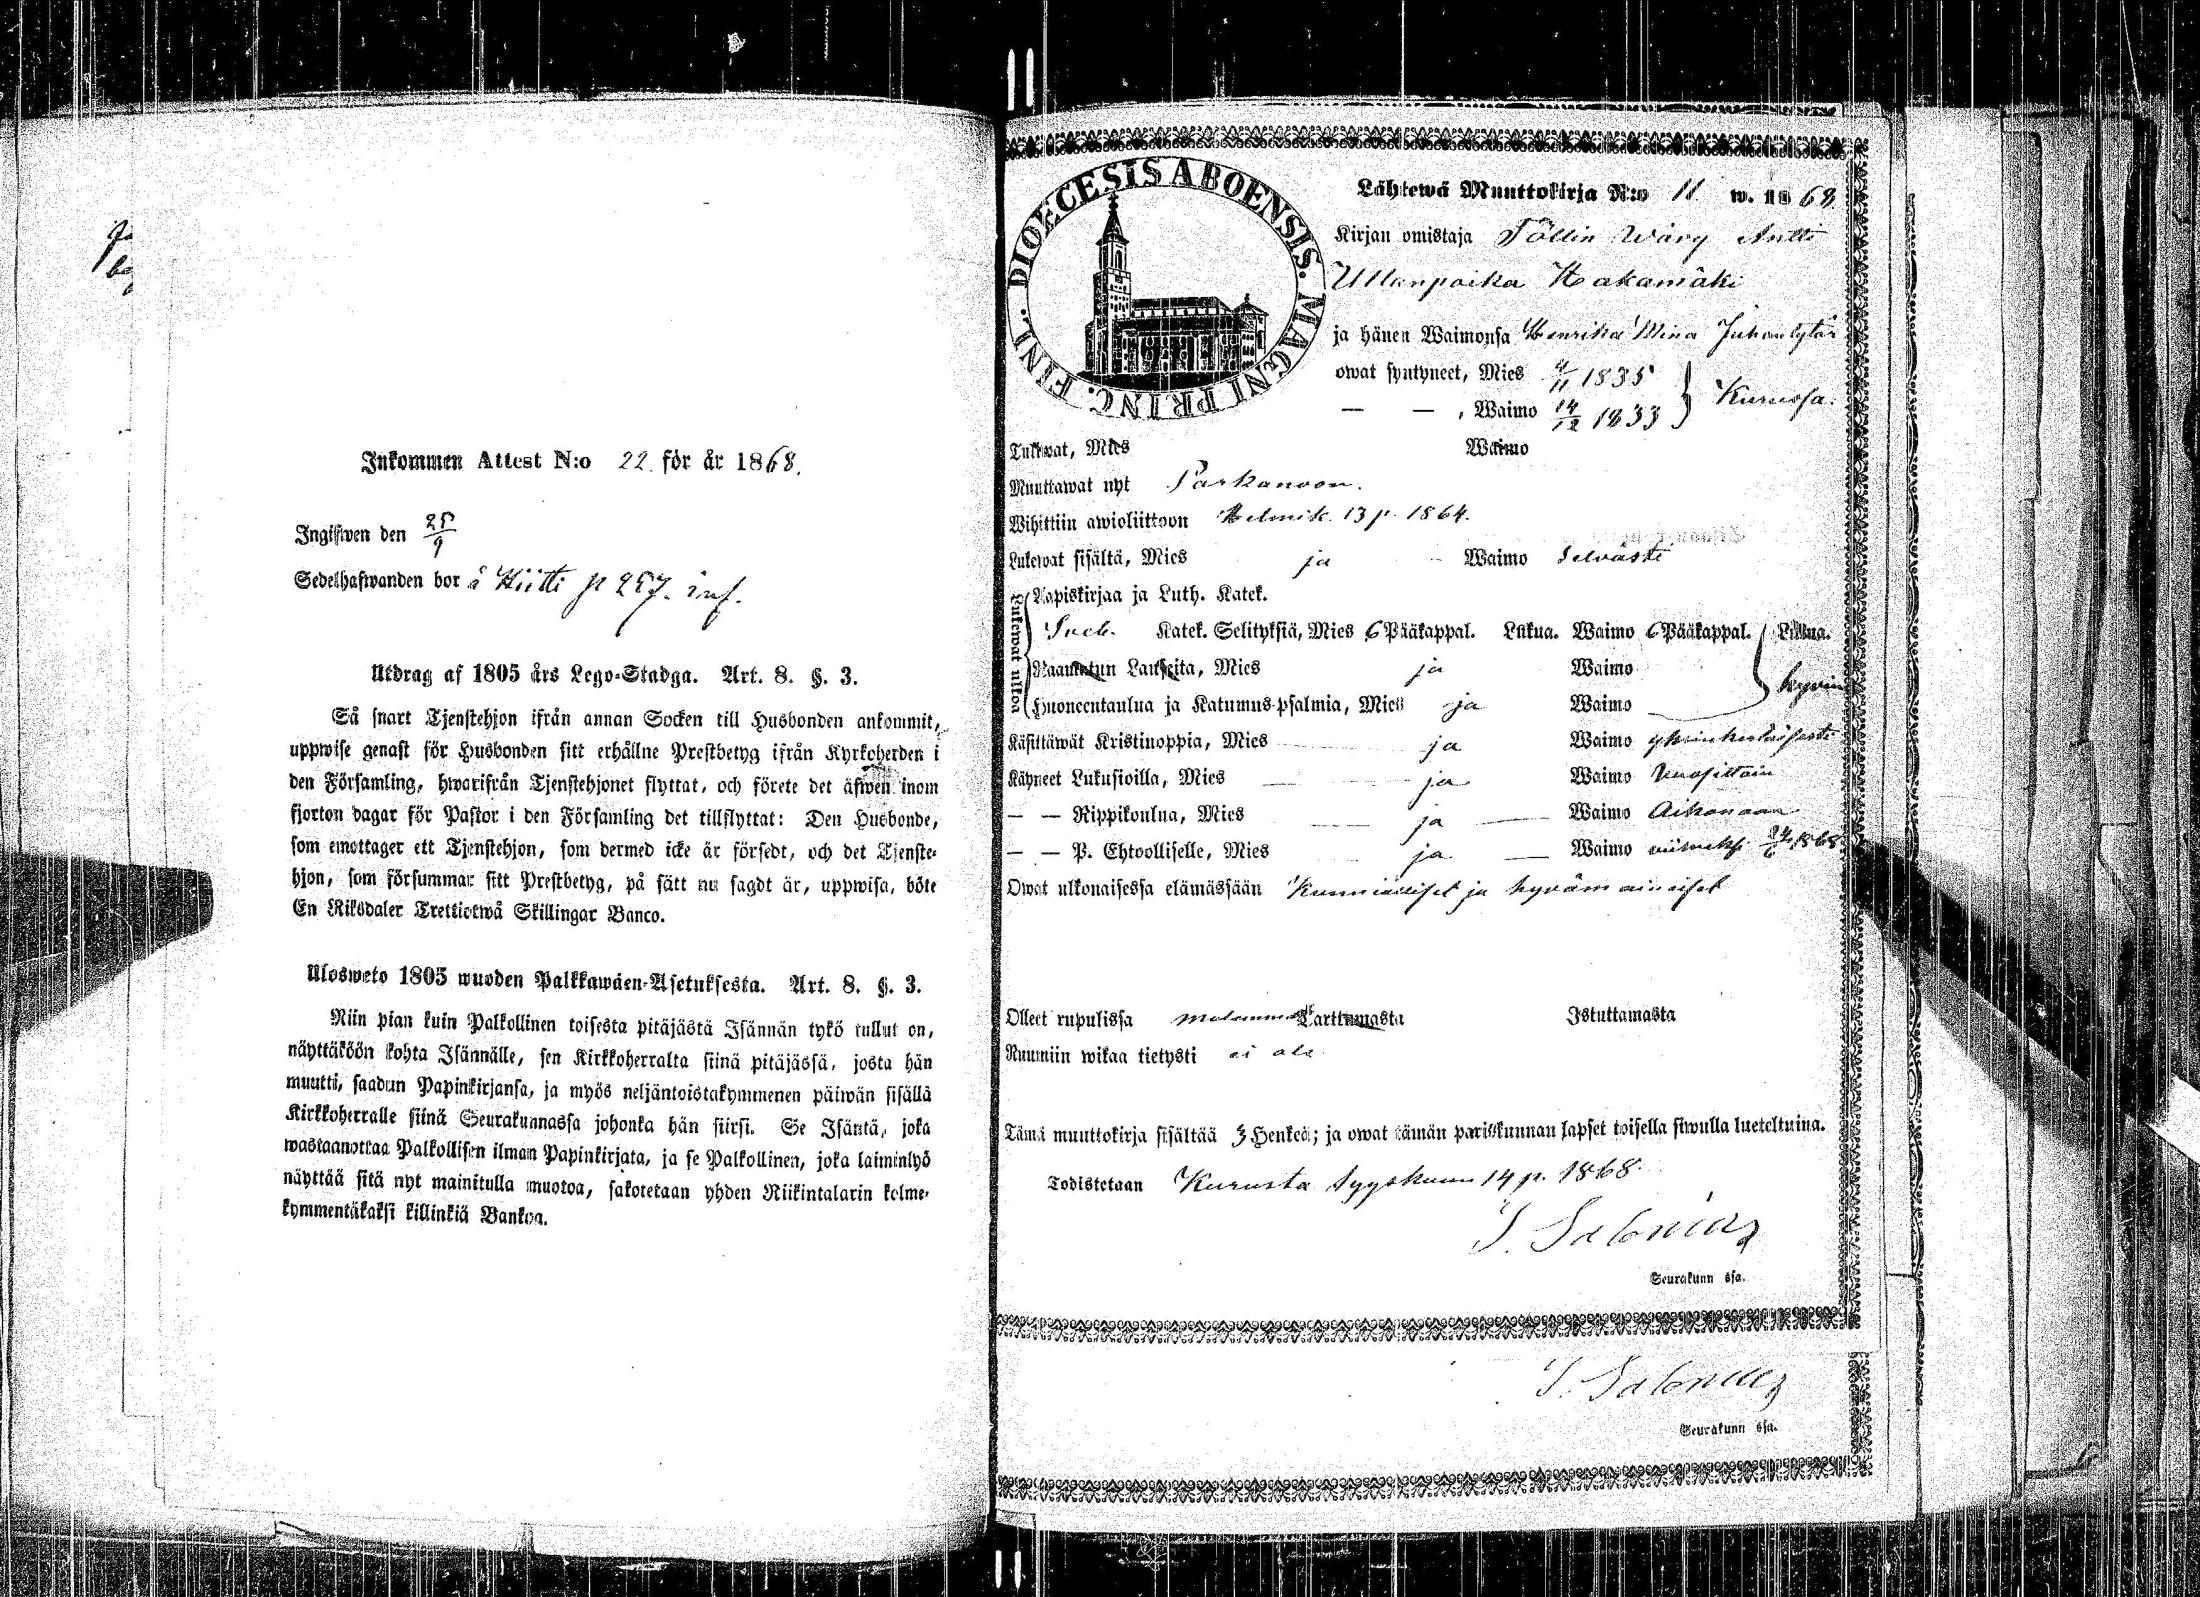 Inkommen Attest N:o 22 för år 1868.
Ingifwen den 25/9
Sedelhafwanden bor å Hiitti p 257. inf.
Utdrag af 1805 års Lego-Stadga. Art. 8. §. 3.
Så snart Tjenstehjon ifrån annan Socken till Husbonden ankommit,
uppwise genast för Husbonden sitt erhållne Prestbetyg ifrån Kyrkoherden i
den Församling, hwarifrån Tjenstehjonet flyttat, och förete det äfwen inom
fjorton dagar för Pastor i den Församling det tillflyttat: Den Husbonde,
som emottager ett Tjenstehjon, som dermed icke är försedt, och det Tjenste-
hjon, som försummar sitt Prestbetyg, på sätt nu sagdt är, uppwisa, böte
En Riksdaler Trettiotwå Skillingar Banco.
Ulosweto 1805 wuoden Palkkawäen-Asetuksesta. Art. 8. §. 3.
Niin pian kuin Palkollinen toisesta pitäjästä Isännän tykö tullut on,
näyttäköön kohta Isännälle, sen Kirkkoherralta siinä pitäjässä, josta hän
muutti, saadun Papinkirjansa, ja myös neljäntoistakymmenen päiwän sisällä
Kirkkoherralle siinä Seurakunnassa johonka hän siirsi. Se Isäntä, joka
wastaanottaa Palkollisen ilman Papinkirjata, ja se Palkollinen, joka laiminlyö
näyttää sitä nyt mainitulla muotoa, sakotetaan yhden Riikintalarin kolme-
kymmentäkaksi killinkiä Bankoa.
DIOECESIS ABOENSIS. MAGNI PRINC. FINL.
Lähtewä Muuttokirja N:o 11 w. 1868
Kirjan omistaja Töllin Wäry Antti
Ullanpoika Hakamäki
ja hänen Waimonsa Henrika Mina Juhontytär
owat syntyneet, Mies /11 1835
— — , Waimo 14/12 1833 } Kurussa.
Tulewat, Mies Waimo
Muuttawat nyt Parkanoon.
Wihittiin awioliittoon Helmik. 13 p. 1864.
Lukewat sisältä, Mies ja Waimo selwästi
Lukewat ulkoa
Aapiskirjaa ja Luth. Katek.
Sveb. Katek. Selityksiä, Mies 6 Pääkappal. Lukua. Waimo 6 Pääkappal. Lukua.
Raamatun Lauseita, Mies ja Waimo
Huoneentaulua ja Katumus-psalmia, Mies ja Waimo hywin
Käsittäwät Kristinoppia, Mies ja Waimo yksinkertaisesti
Käyneet Lukusioilla, Mies ja Waimo Vuosittain
— — Rippikoulua, Mies ja Waimo Aikanaan
— — P. Ehtoolliselle, Mies ja Waimo viimeksi 24/6 1868
Owat ulkonaisessa elämässään Kunnialliset ja hyvämainiset
Olleet rupulissa molemmat Tarttumasta Istuttamasta
Ruumiin wikaa tietysti ei ole
Tämä muuttokirja sisältää 3 Henkeä; ja owat tämän pariskunnan lapset toisella siwulla lueteltuina.
Todistetaan Kurusta Syyskuun 14 p. 1868.
Seurakunn ssa.
Seurakunn ssa.